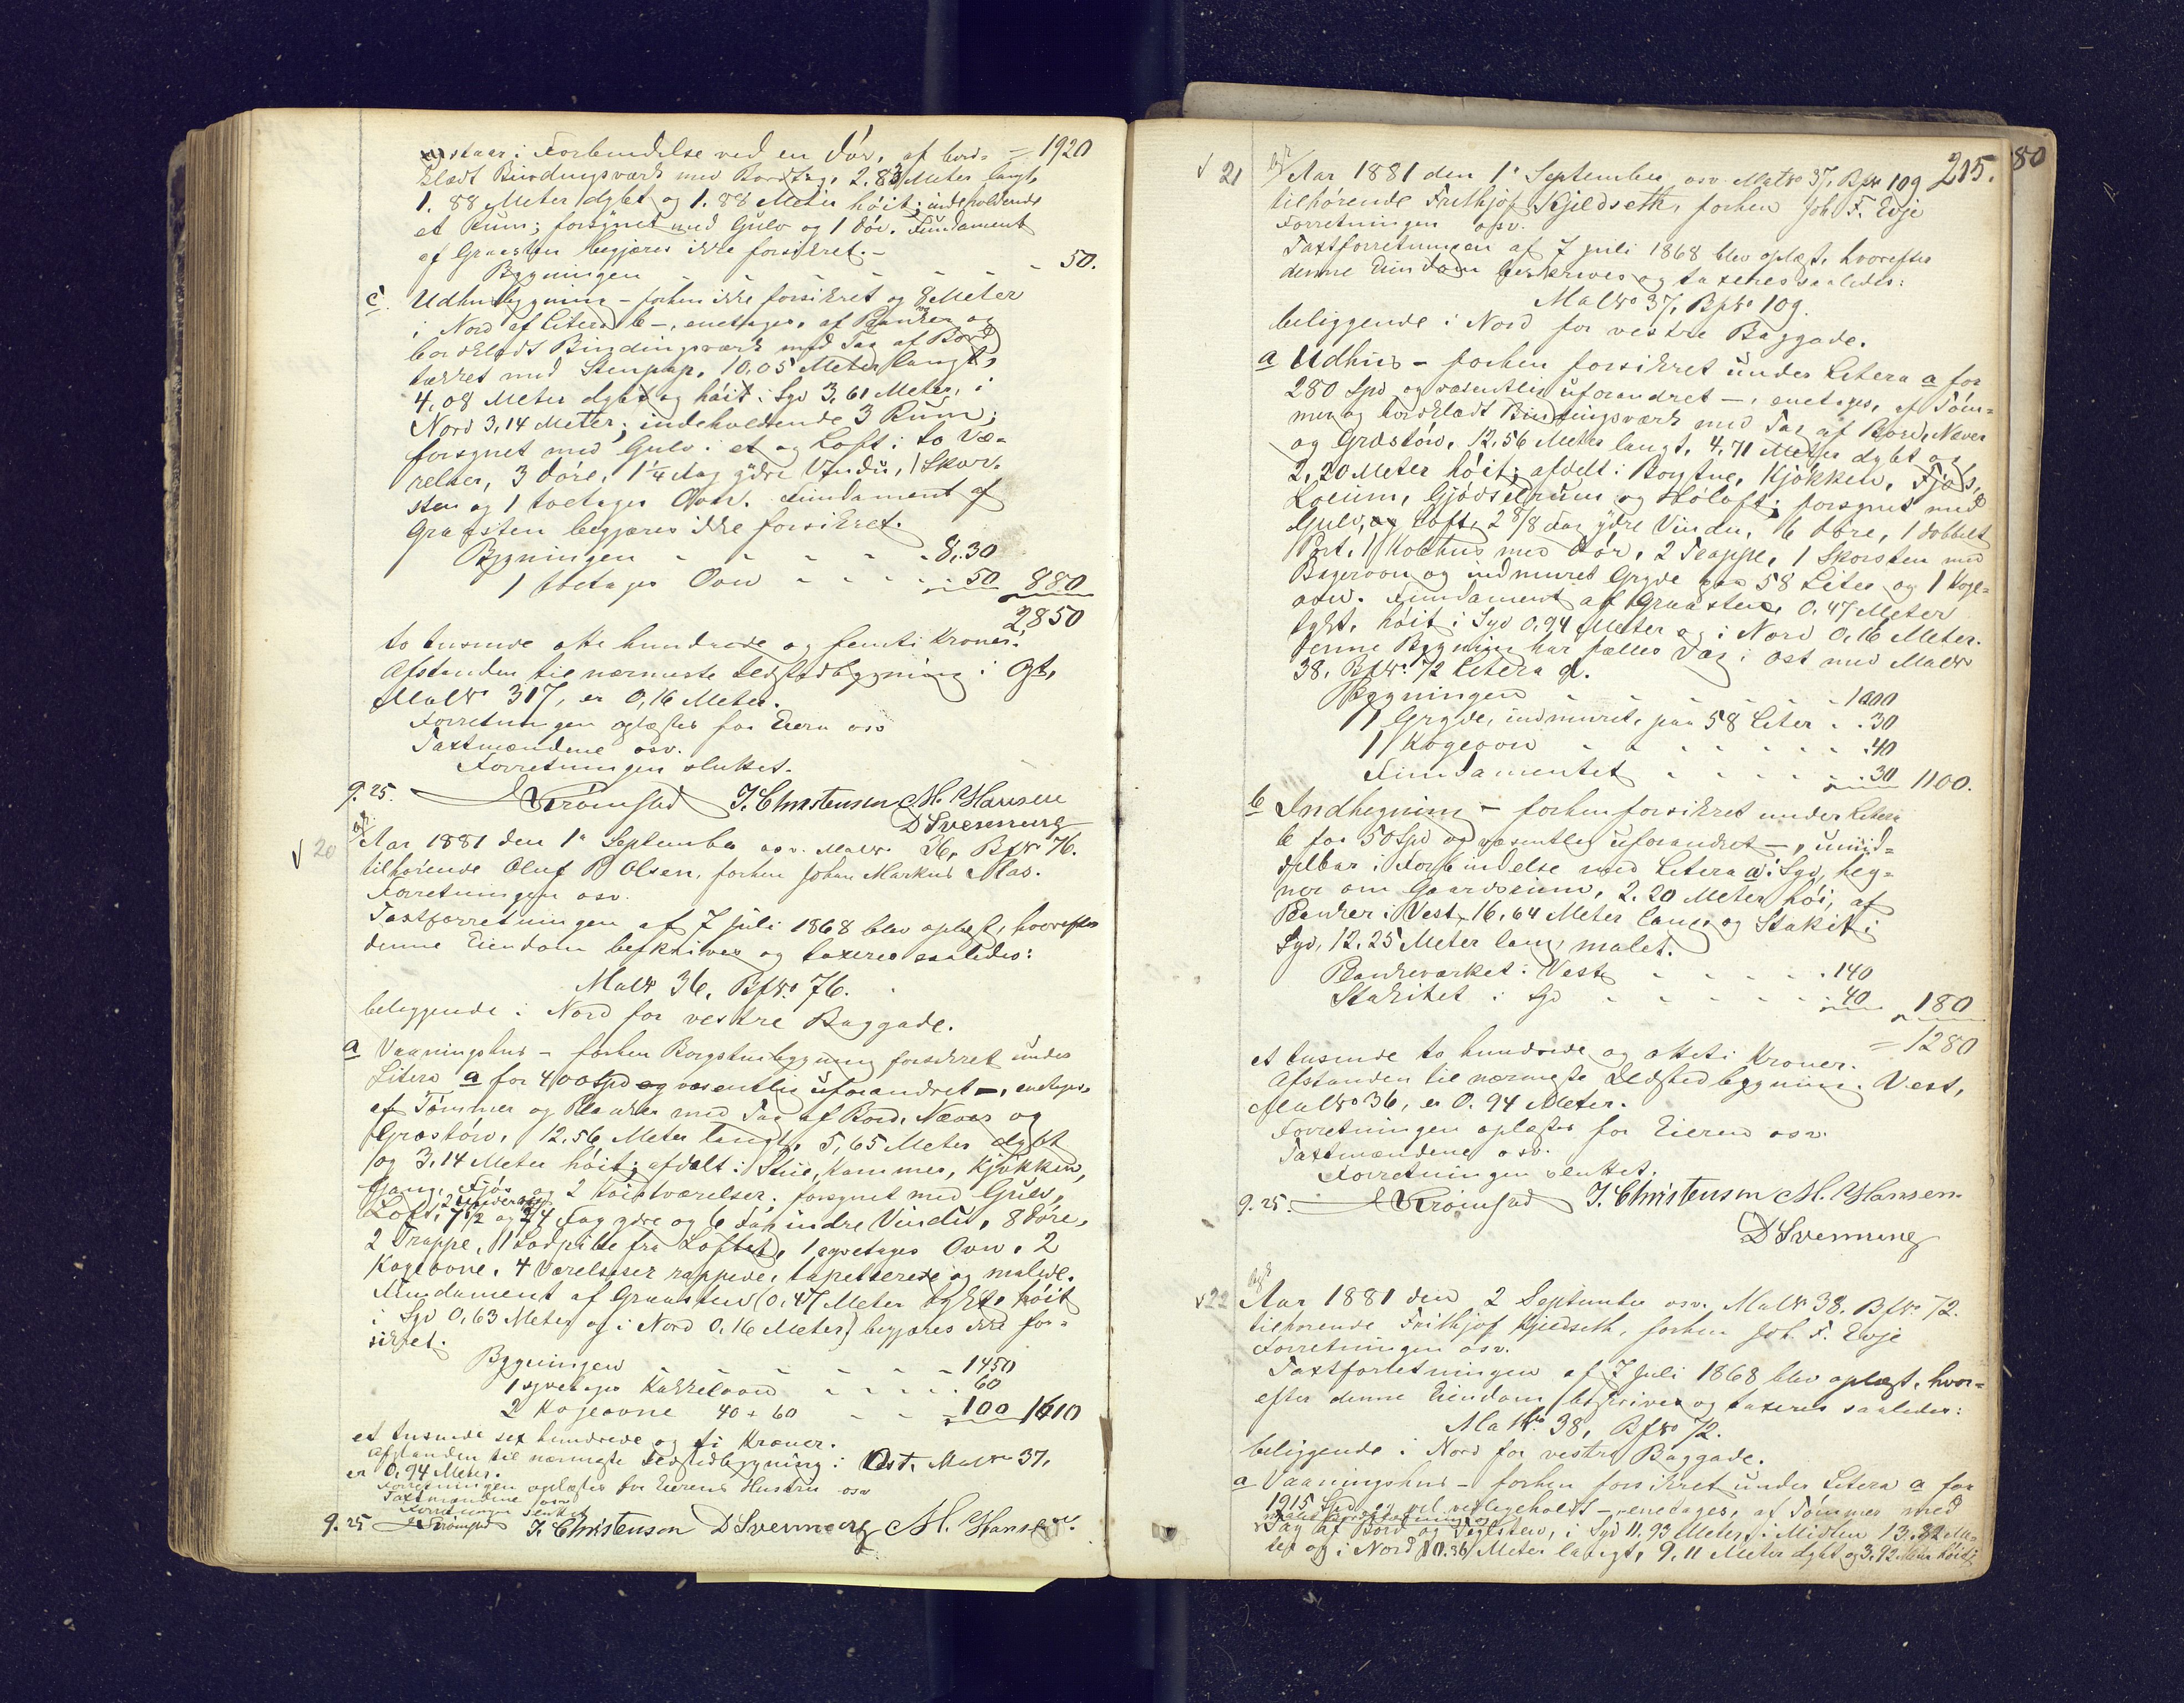 staar i Forbindelse ved en Dör, af bord- = 1920
klædt Bindingsværk med Bordtag, 2.83 Meter langt,
1.88 Meter dybt og 1.88 Meter höit; indeholdende
et Rum; forsynet med Gulv og 1 Dör. Fundament
af Graasten begjæres ikke forsikret.-
Bygningen - - - - - - - 50.
c. Udhusbygning - forhen ikke forsikret og 8 Meter
i Nord af Litera b -, enetages, af Planker og
bordklædt Bindingsværk med Tag af Bord
tækket med Stenpap, 10,05 Meter langt,
4,08 Meter dybt og höit i Syd 3,61 Meter, i
Nord 3,14 Meter; indeholdende 3 Rum;
forsynet med Gulv i et og Loft i to Væ-
relser, 3 Döre, 1 1/4 Fag ydre Vindu, 1 Skor-
sten og 1 toetages Ovn. Fundament af
Graasten begjæres ikke forsikret.
Bygningen - - - - - 830
1 toetages Ovn - - - - 50 880
2850
to tusende otte hundrede og femti Kroner.
Afstanden til nærmeste Ildstedbygning i Öst,
Matr 317, er 0,16 Meter.
Forretningen oplæstes for Eieren osv
Taxtmændene osv.
Forretningen sluttet.
9.25. Strömstad J. Christensen M. Hansen
D Svenning
√ 20 Aar 1881 den 1' September osv. Matr 36, Bfr 76.
tilhörende Oluf B Olsen, forhen Johan Markus Aas.
Forretningen osv.
Taxtforretningen af 7 juli 1868 blev oplæst, hvorefter
denne Eiendom beskrives og taxeres saaledes:
Matr 36, Bfr. 76.
beliggende i Nord for vestre Baggade.
a Vaaningshus - forhen Borgstuebygning forsikret under
Litera a for 400 Spd og væsentlig uforandret -, enetages,
af Tömmer og Planker med Tag af Bord, Næver og
Græstörv, 12,56 Meter langt, 5,65 Meter dybt
og 3,14 Meter höit; afdelt i Stue, Kammer, Kjökken,
Gang, Fjös og 2 Kvistværelser; forsynet med Gulv,
Loft, 7 1/2 og 2/4 Fag ydre og 6 Fag indre Vindu, 8 Döre,
2 Trappe, 1 Lodpibe fra Loftet, 1 syvetages Ovn, 2
Kogeovne. 4 Værelser rappede, tapetserede og malede.
Fundament af Graasten (0,47 Meter tykt, höit
i Syd 0,63 Meter og i Nord 0,16 Meter) begjæres ikke for-
sikret.
Bygningen - - - - - - 1450
1 syvetages Kakkelovn - - - - 60
2 Kogeovne 40 + 60 - - 100 1610
et tusende sex hundrede og ti Kroner.
Afstanden til nærmeste Ildstedbygning i Öst, Matr 37,
er 0,94 Meter.
Forretningen oplæstes for Eierens Hustru osv
Taxtmændene osv
Forretningen sluttet
9.25 Strömstad J. Christensen D Svenning M. Hansen.
215. 80
√ 21 Aar 1881 den 1' September osv Matr 37, Bfr 109
tilhörende Frithjof Kjeldseth, forhen Joh. F. Evje
Forretningen osv.
Taxtforretningen af 7 juli 1868 blev oplæst, hvorefter
denne Eiendom beskrives og taxeres saaledes:
Matr 37, Bfr 109.
beliggende i Nord for vestre Baggade.
a Udhus - forhen forsikret under Litera a for
280 Spd og væsentlig uforandret -, enetages, af Töm-
mer og bordklædt Bindingsværk med Tag af Bord, Næver
og Græstörv, 12,56 Meter langt, 4,71 Meter dybt og
2,20 Meter höit; afdelt i Borgstue, Kjökken, Fjös,
Lorum, Gjödselrum og Höloft; forsynet med
Gulv, og Loft, 2 5/8 Fag ydre Vindu, 6 Döre, 1 dobbelt
Port, 1 Kothus med Dör, 2 Trappe, 1 Skorsten med
Bagerovn og indmuret Gryde paa 58 Liter og 1 Koge-
ovn. Fundament af Graasten, 0,47 Meter
tykt, höit i Syd 0,94 Meter og i Nord 0,16 Meter.
Denne Bygning har fælles Væg i Öst med Matr
38, Bfr. 72 Litera d.
Bygningen - - - - - 1000
1 Gryde, indmuret, paa 58 Liter - . 30
1 Kogeovn - - - - - - - 40
Fundamentet - - - - - 30 1100.
b Indhegning - forhen forsikret under Litera
b for 50 Spd og væsentlig uforandret -, umid-
delbar i Forbindelse med Litera a i Syd, heg-
ner om Gaardsrum, 2.20 Meter höi, af
Planker i Vest, 16,64 Meter lang, og Stakit i
Syd, 12.25 Meter lang, malet.
Plankeværket i Vest - - - - - 140
Stakitet i Syd - - - - - 40 180
= 1280
et tusende to hundrede og otteti Kroner.
Afstanden til nærmeste Ildstedbygning i Vest,
Matr 36, er 0.94 Meter.
Forretningen oplæstes for Eieren osv.
Taxtmændene osv.
Forretningen sluttet.
9.25. Strömstad J. Christensen M. Hansen
D Svenning
√ 22 Aar 1881 den 2 September osv. Matr 38. Bfr. 72.
tilhörende Frithjof Kjeldseth, forhen Joh. F. Evje
Forretningen osv.
Taxtforretningen af 7 juli 1868 blev oplæst, hvor-
efter denne Eiendom beskrives og taxeres saaledes:
Matr. 38, Bfr. 72.
beliggende i Nord for vestre Baggade.
a Vaaningshus - forhen forsikret under Litera a for
1915 Spd og vel vedligeholdt -, enetages, af Tömmer med
Tag af Bord og Teglsten, i Syd 11.93 Meter, i Midten 13.82 Me-
ter og i Nord 10.36 Meter langt, 9.11 Meter dybt og 3,92 Meter höit;